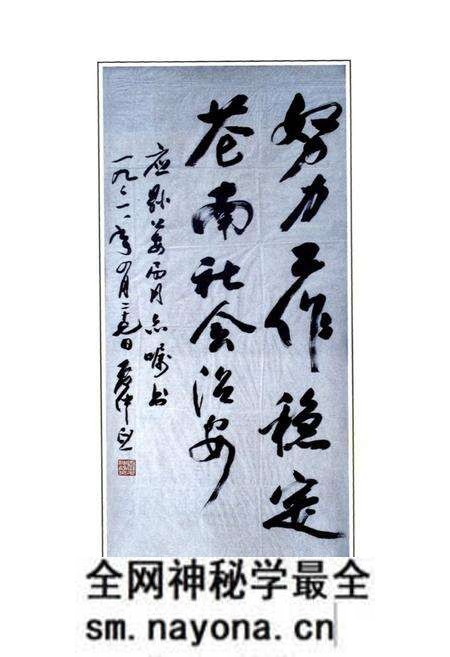 努力工作稳定
苍南社会治安
应县公安局同志嘱书
一九八一年四月二十九日
全网神秘学最全
sm.nayona.cn